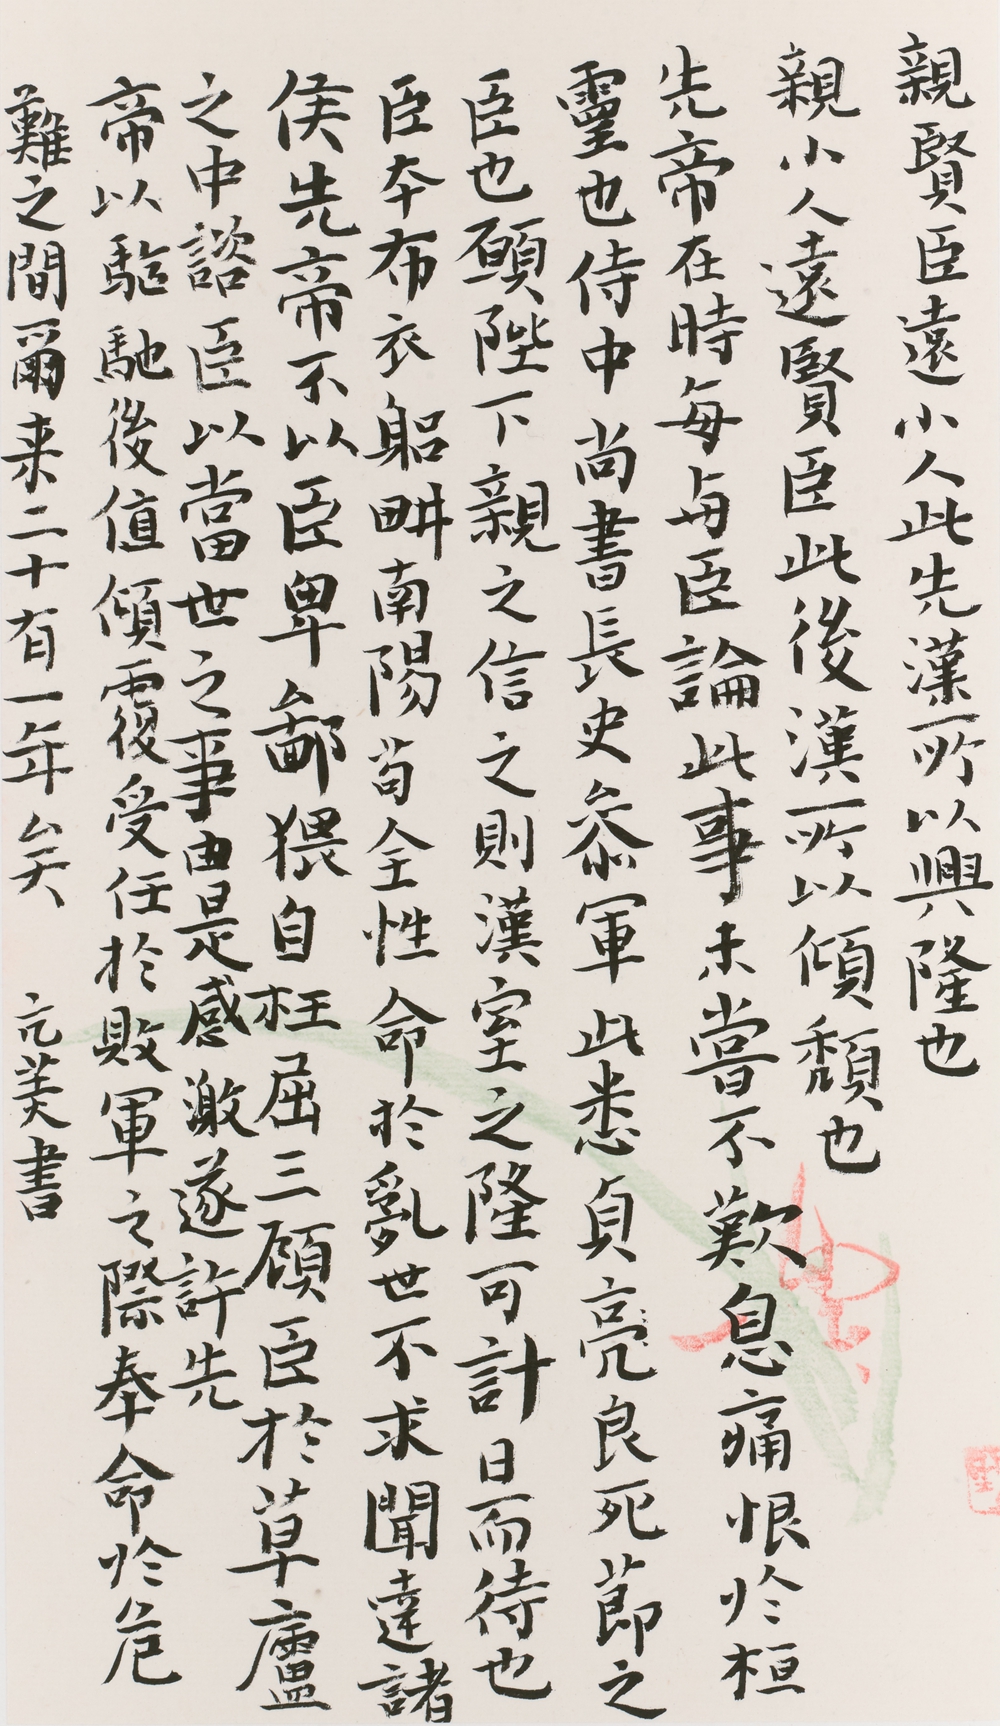 親賢臣遠小人此先漢所以興隆也
親小人遠賢臣此後漢所以傾頹也
先帝在時每與臣論此事未嘗不歎息痛恨於桓
靈也侍中尚書長史參軍此悉貞亮良死節之
臣也願陛下親之信之則漢室之隆可計日而待也
臣本布衣躬畊南陽苟全性命於亂世不求聞達諸
侯先帝不以臣卑鄙猥自枉屈三顧臣於草廬
之中諮臣以當世之事由是感激遂許先
帝以驅馳後值傾覆受任於敗軍之際奉命於危
難之間爾来二十有一年矣 亢美書